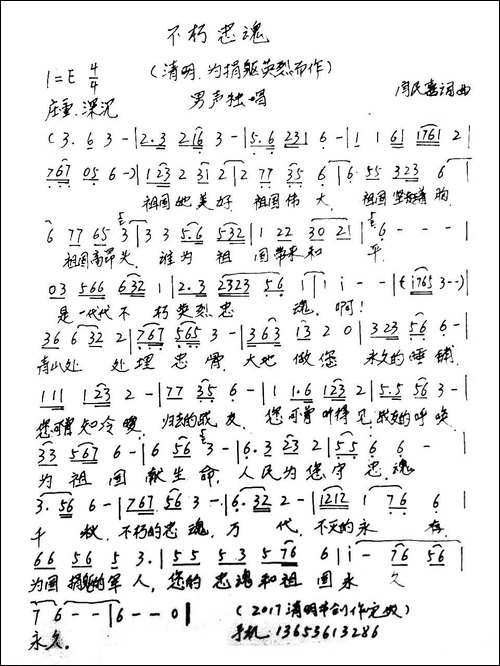 不朽忠魂
1=E 4/4
(清明.为捐躯英烈而作)
庄重.深沉
男声独唱
周民喜词曲
(3. 6 3 - | 2.3 216 3 - | 5.6 231 6 - | 1 1 61 1761 2 |
767 05 6 -) | 123 2 31 2 | 2 77 35 6 | 6 55 323 6 |
祖国她美好 祖国伟大, 祖国
6 77 65 3 | 3 3 5.6 532 | 1 22 30 2 | 6 - - -
祖国高昂头, 谁为祖国带来和平.
03 566 632 1 | 2.3 2323 56 1 | 1 i - - | (i765 3 - -)
是一代代不朽英烈忠魂. 啊!
36 6 32 2 | 767 565 3 - | 363 13 2 0 | 323 56 6 -
青山处处埋忠骨. 大地做您 永久的睡铺
111 123 2 - | 77 35 6 - | 1 1.6 123 2 | 5.5 56 3 -
您可曾知冷暖, 的战友. 您可曾听得见,战友的呼唤.
33 567 6 - | 6 56 3 - | 6.3 23 2 | 55 6 6 -
为祖国献生命, 人民为您守忠魂
3. 56 6 - | 767 56 3 - | 6. 32 2 - | 1212 1 76 6
千秋.不朽的忠魂, 万代.不灭的永存.
66 56 5 3. | 55 53 576 6 | i - 76 56
为国捐躯的军人, 您的忠魂和祖国永久
7 6 - - | 6 - - 0 |
(2017清明节创作完毕)
永久.
手机: 13653613286